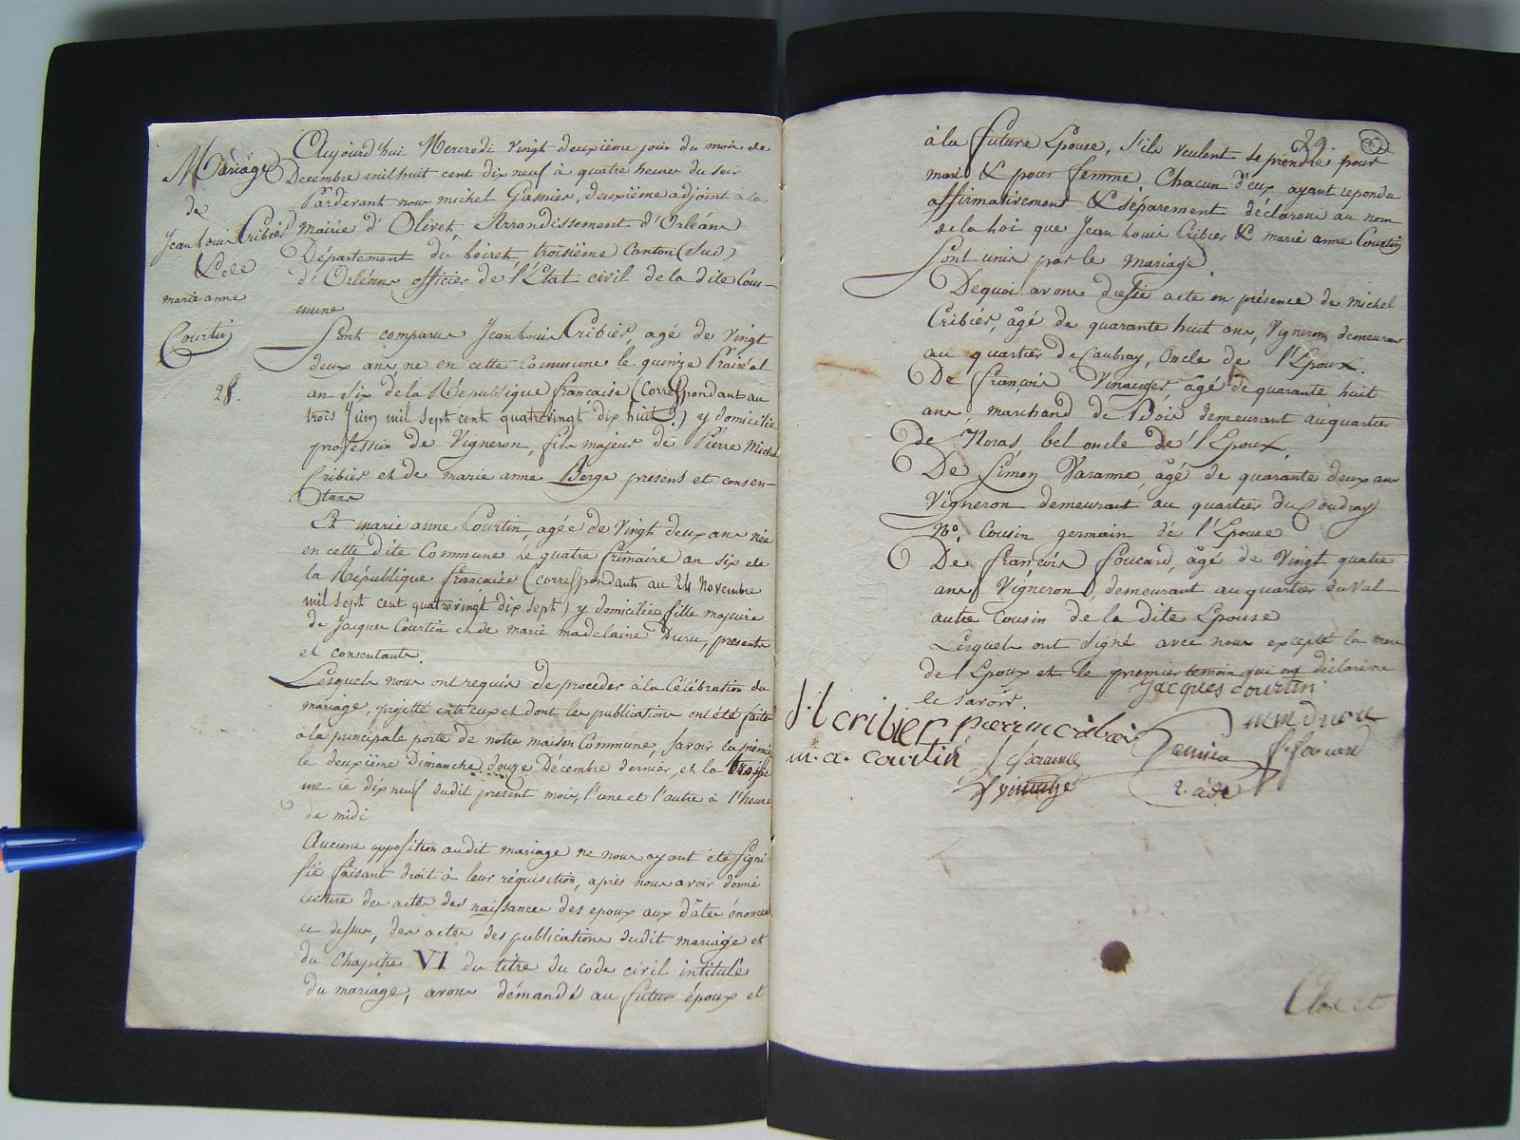 Mariage
de
Jean Louis Cribier
& de
marie anne
Courtin
28.
Aujourd'hui Mercredi vingt deuxiëme jour du mois de
Decembre mil huit cent dix neuf à quatre heures du soir
Pardevant nous michel Gamier, deuxième adjoint à la
mairie d'Olivet, Arrondissement d'Orléans
Département du Loiret, troisième Canton (sud)
d'Orléans officier de l'Etat civil de la dite Com-
mune
Sont comparus Jean Louis Cribier, agé de vingt
deux ans né en cette Commune le quinze Prairéal
an six de la République française (correspondant au
trois Juin mil sept cent quatrevingt dix huit) y domicilié
profession de Vigneron, fils majeur de Pierre Michel
Cribier et de marie anne Berge presens et consen-
tans
Et marie anne Courtin, agée de vingt deux ans née
en cette dite Commune le quatre frimaire an six de
la République francaise (correspondant au 24 Novembre
mil sept cent quatrevingt dix sept) y domiciliée fille majeure
de Jacques Courtin et de marie madelaine Duru, presents
et consentants.
Lesquels nous ont requis de proceder à la Célébration du
mariage, projetté entr'eux et dont les publications ont été faites
à la principale porte de notre maison Commune, savoir la premie
le deuxième Dimanche douze Décembre dernier, et la
me le dix neuf dudit présent mois, l'une et l'autre à l'heure
de midi
Aucune opposition audit mariage ne nous ayant été signi-
fié faisant droit à leur réquisition, après nous avoir donné
lecture des actes des naissances des epoux aux dâtes énoncées
ci dessus, des actes des publications dudit mariage et
du Chapitre VI du titre du code civil intitulé
du mariage, avons démandé au futur époux et
29.
à la future Epouse, s'ils veulent se prendre pour
mari & pour femme Chacun d'eux ayant repondu
affirmativement & séparement déclarons au nom
de la Loi que Jean Louis Cribier & marie anne Courtin
sont unis par le mariage.
De quoi avons dressé acte en présence de Michel
Cribier, âgé de quarante huit ans, Vigneron demeurant
au quartier de Caubray, Oncle de l'Epoux.
De François Vinauger âgé de quarante huit
ans, marchand de Bois demeurant au quartier
de Noras, bel oncle de l'Epoux.
De Simon Paranne, âgé de quarante deux ans
Vigneron demeurant au quartier du Coudray
No. Cousin germain de l'Epouse
De François Foucard, âgé de vingt quatre
ans Vigneron, demeurant au quartier du Val
autre Cousin de la dite Epouse
Lesquels ont signé avec nous excepté la mere
de l'Epoux et le premier temoin qui ont déclarés ne
le savoir.
Jacques Courtin
J L cribier
m. a. courtin
f foucard